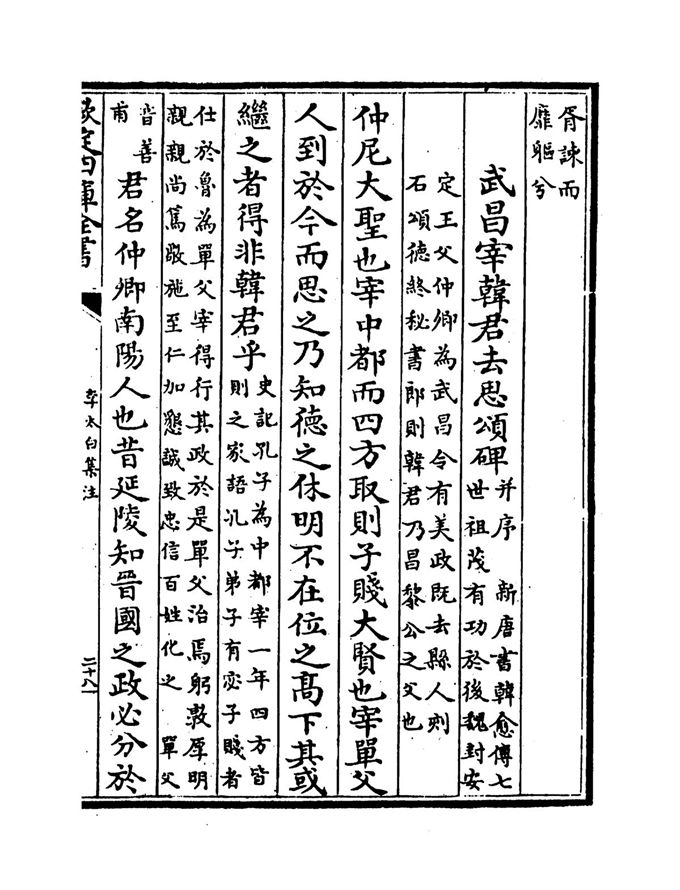 胥諫而
靡軀兮
武昌宰韓君去思頌碑
并序　新唐書韓愈傳七
世祖茂有功於後魏封安
定王父仲卿為武昌令有美政既去縣人刻
石頌德終秘書郎則韓君乃昌黎公之父也
仲尼大聖也宰中都而四方取則子賤大賢也宰單父
人到於今而思之乃知德之休明不在位之髙下其或
繼之者得非韓君乎
史記孔子為中都宰一年四方皆
則之家語孔子弟子有宓子賤者
仕於魯為單父宰得行其政於是單父治焉躬敦厚明
親親尚篤敬施至仁加懇誠致忠信百姓化之　單父
音善
甫
君名仲卿南陽人也昔延陵知晉國之政必分於
欽定四庫全書
李太白集注
二十八